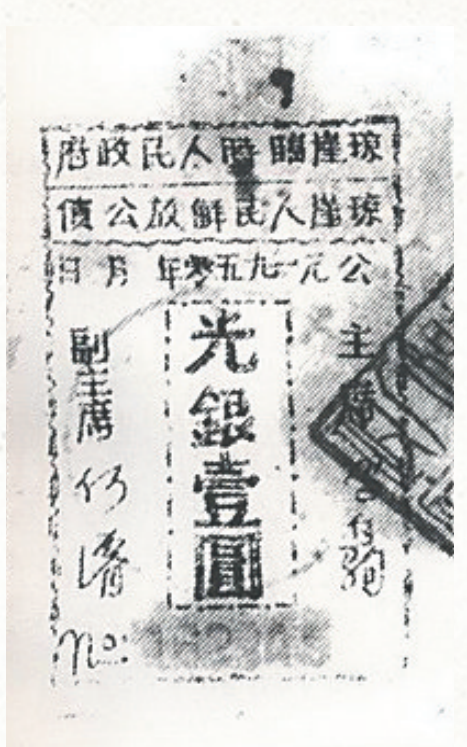 琼崖臨時人民政府
琼崖人民解放公債
公元一九五零年 月 日
主席 馮白駒
光銀壹圓
副主席 何濬
No: